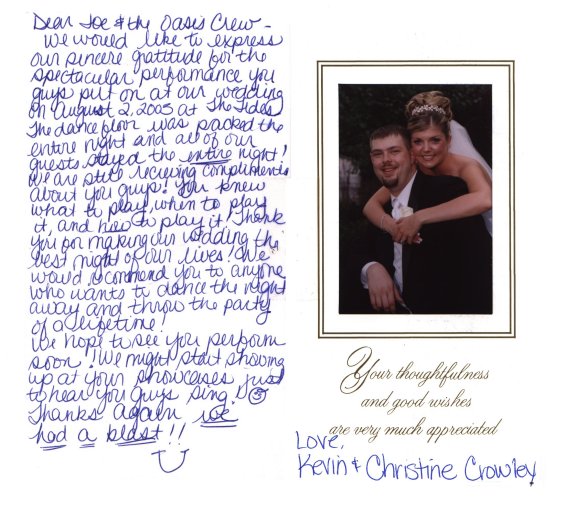 Dear Joe & the Oasis Crew -
We would like to express
our sincere gratitude for the
spectacular performance you
guys put on at our wedding
on August 2, 2003 at The Tides.
The dance floor was packed the
entire night and all of our
guests stayed the entire night!
We are still recieving compliments
about you guys! You knew
what to play, when to play
it, and how to play it! Thank
you for making our wedding the
best night of our lives! We
would recommend you to anyone
who wants to dance the night
away and throw the party
of a lifetime!
We hope to see you perform
soon! We might start showing
up at your showcases just
to hear you guys sing!
Thanks again we
had a blast!!
Your thoughtfulness
and good wishes
are very much appreciated
Love,
Kevin & Christine Crowley